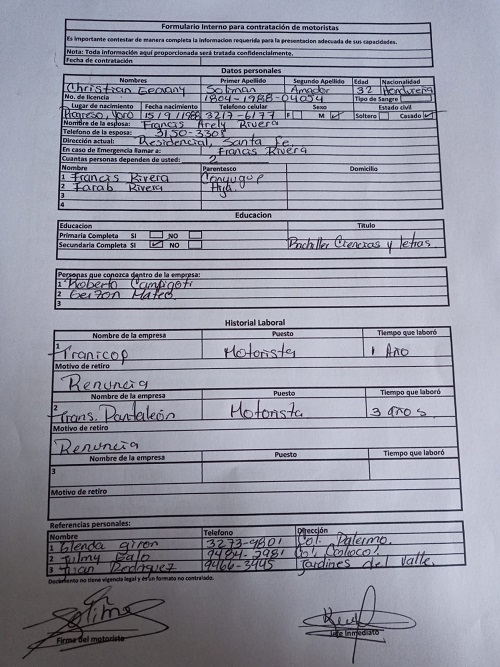 Formulario Interno para contratación de motoristas
Es importante contestar de manera completa la informacion requerida para la presentacion adecuada de sus capacidades.
Nota: Toda información aquí proporcionada será tratada confidencialmente.
Fecha de contratación
Datos personales
Nombres Primer Apellido Segundo Apellido Edad Nacionalidad
Christian Geovany Soliman Amador 32 Hondureña
No. de licencia 1804-1988-04054 Tipo de Sangre
Lugar de nacimiento Fecha nacimiento Telefono celular Sexo Estado civil
Progreso, Yoro 15/9/1988 3217-6177 F M Soltero Casado
Nombre de la esposa: Francis Arely Rivera
Telefono de la esposa: 3150-3308
Dirección actual: Residencial, Santa Fe.
En caso de Emergencia llamar a: Francis Rivera
Cuantas personas dependen de usted: 2
Nombre Parentesco Domicilio
1 Francis Rivera Conyugue
2 Farab Rivera Hija
3
4
Educacion
Educacion Titulo
Primaria Completa SI NO
Secundaria Completa SI NO Bachiller Ciencias y letras.
Personas que conozca dentro de la empresa:
1 Roberto Campigoti
2 Geizon Mateo.
3
Historial Laboral
Nombre de la empresa Puesto Tiempo que laboró
1 Tranicop Motorista 1 Año
Motivo de retiro
Renuncia
Nombre de la empresa Puesto Tiempo que laboró
2 Trans. Pantaleón Motorista 3 años.
Motivo de retiro
Renuncia
Nombre de la empresa Puesto Tiempo que laboró
3
Motivo de retiro
Referencias personales:
Nombre Telefono Dirección
1 Glenda giron 3273-9801 Col. Palermo.
2 Galo 9484-2981 Col.
3 Juan Rodriguez 9466-3445 Jardines del Valle.
Documento no tiene vigencia legal y es un formato no contralado.
Firma del motorista Jefe Inmediato